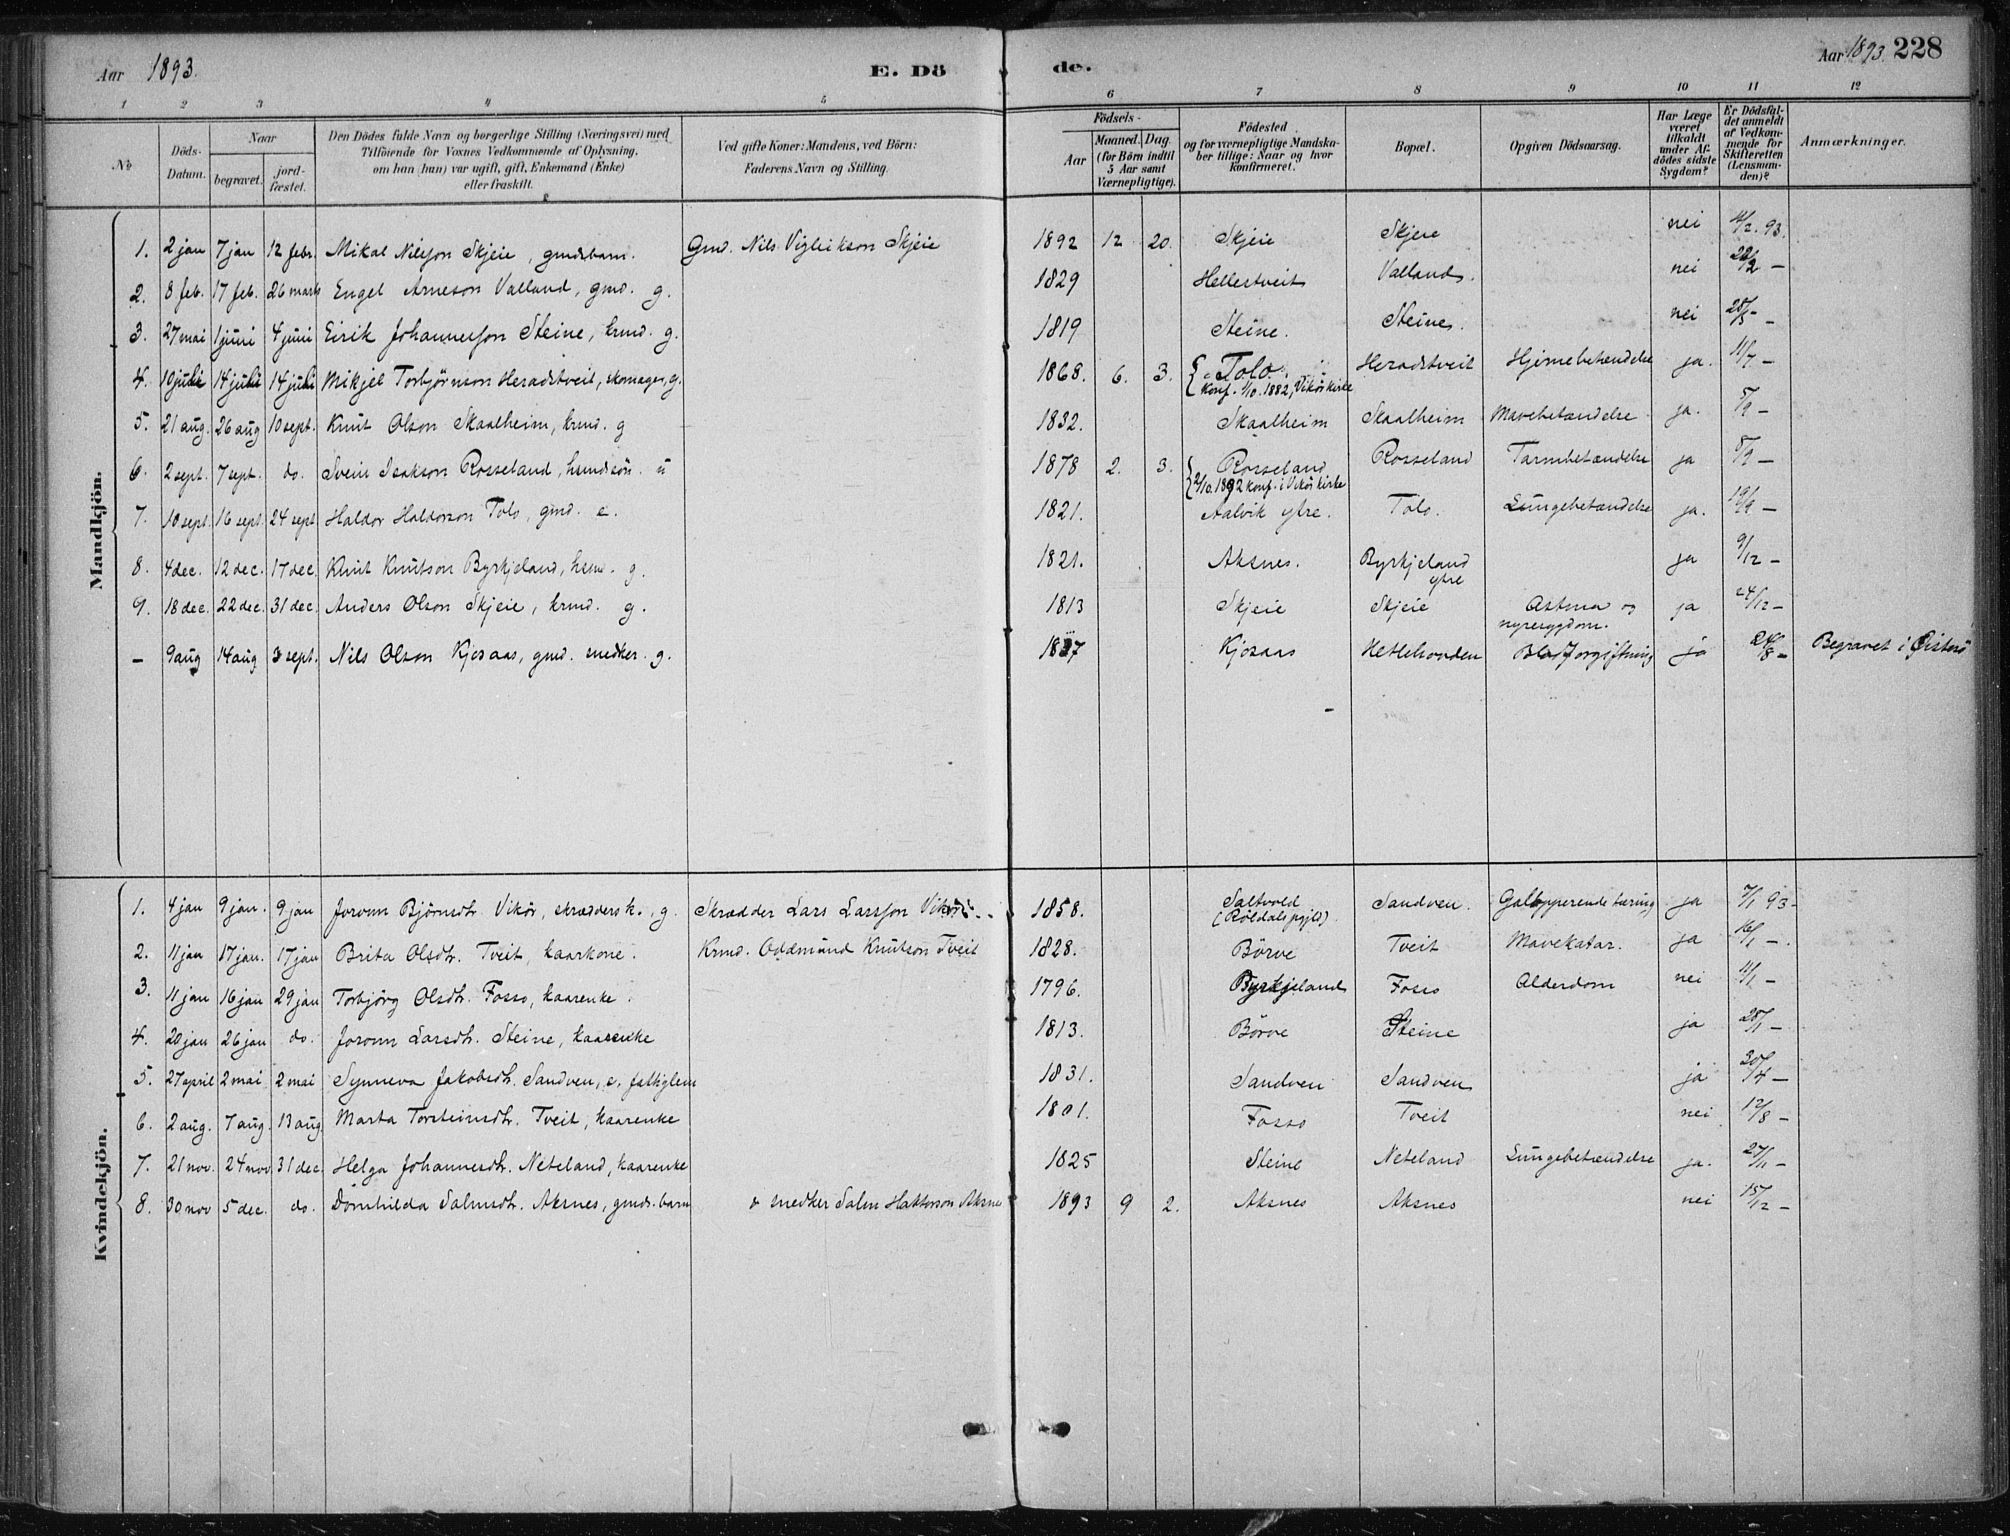 Aar 1893. E. Dö de. Aar 1893. 228
1 2 3 4 5 6 7 8 9 10 11 12
No
Döds-Datum.
Naar
begravet.
jord-fæstet.
Den Dödes fulde Navn og borgerlige Stilling (Næringsvei) med
Tilföiende for Voxnes Vedkommende af Oplysning,
om han (hun) var ugift, gift, Enkemand (Enke)
eller fraskilt.
Ved gifte Koner: Mandens, ved Börn:
Faderens Navn og Stilling.
Födsels-
Aar
Maaned. Dag.
(for Börn indtil
5 Aar samt
Værnepligtige).
Födested
og for værnepligtige Mandska-
ber tillige: Naar og hvor
konfirmeret.
Bopæl.
Opgiven Dödsaarsag.
Har Læge
været
tilkaldt
under Af-
dödes sidste
Sygdom?
Er Dödsfal-
det anmeldt
af Vedkom-
mende for
Skifteretten
(Lensman-
den)?
Anmærkninger.
Mandkjön.
1. 2 jan 7 jan 12 febr. Mikal Nilsson Skjeie, gmdsbarn. Gmd. Nils Viglikson Skjeie 1892 12 20. Skjeie Skjeie nei 11/2. 93.
2. 8 feb. 17 feb. 26 marts Engel Arneson Valland, gmd. g. 1829 Hellestveit Valland. nei 22/2 -
3. 27 mai 1 juni 4 juni Eirik Johannesson Steine, krmd. g. 1819 Steine. Steine. nei 28/5 -
4. 10 juli 14 juli 14 juli Mikjel Torbjörnson Heradstveit, skomager, g. 1868. 6. 3. Tolo. Heradstveit Hjernebetændelse ja. 11/7 -
Konf. 1/10. 1882, Vikör kirke
5. 21 aug. 26 aug 10 sept. Knut Olson Skaalheim, krmd. g 1832. Skaalheim Skaalheim Mavebetændelse ja. 5/9 -
6. 2 sept. 7 sept. do. Svein Isakson Rosseland, husmdssön. u 1878 2. 3. Rosseland Rosseland Tarmbetændelse ja 8/9 -
2/10. 1892 konf. i Vikör kirke
7. 10 sept. 16 sept. 24 sept Haldor Haldorson Tolo, gmd. e. 1821. Aalvik ytre. Tolo. Lungebetændelse ja. 19/9 -
8. 4 dec. 12 dec. 17 dec. Knut Knutson Byrkjeland, husm. g. 1821. Aksnes. Byrkjeland ytre ja 9/12 -
9. 18 dec. 22 dec. 31 dec. Anders Olson Skjeie, krmd. g. 1813 Skjeie Skjeie Astma og nyresygdom. ja 24/12 -
- 9 aug 14 aug 3 sept. Nils Olson Kjosaas, gmd. snedker. g. Kjosaas Hetlehonden Blodforgiftning ja 24/8 - Begravet i
Kvindekjön.
1. 4 jan 9 jan. 9 jan Joronn Björnsdtr. Vikör, skræddersk., g. Skrædder Lars Larsson Vikör. 1858. Saltvold (Röldals pgjld). Sandven. Galopperende tæring ja 7/1 93 -
2. 11 jan 17 jan. 17 jan Brita Olsdtr. Tveit, kaarkone. Krmd. Oddmund Knutson Tveit 1828. Börve Tveit Mavekatar. ja 16/1 -.
3. 11 jan 16 jan 29 jan Torbjörg Olsdtr. Fosso, kaarenke. 1796. Byrkjeland Fosso Alderdom nei 11/1 -
4. 20 jan 26 jan do. Joronn Larsdtr. Steine, kaarenke 1813. Börve Steine ja 28/1 -
5. 27 april 2 mai 2 mai Synneva Jakobsdtr. Sandven, e. fattiglem 1831. Sandven Sandven ja 30/4 -
6. 2 aug. 7 aug. 13 aug Marta Torsteinsdtr. Tveit, kaarenke 1801. Fosso Tveit nei 12/8 -
7. 21 nov. 24 nov. 31 dec. Helga Johannesdtr. Neteland, kaarenke 1825 Steine Neteland Lungebetændelse ja. 27/11 -
8. 30 nov 5 dec. do. Dömhilda Salmsdtr. Aksnes, gmds. barn snedker Salm Aksnes 1893 9 2. Aksnes Aksnes nei 15/12 -